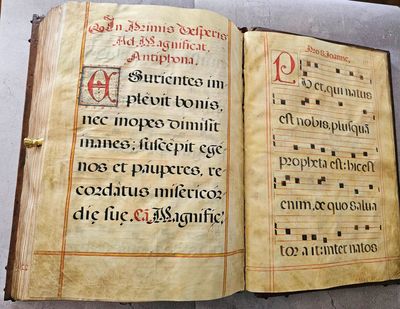 In Primis Vesperis
Ad Magnificat,
Antiphona.
ESurientes im
plevit bonis,
nec inopes dimisit
inanes; suscepit ege
nos et pauperes, re
cordatus misericor
dię suę. Cā. Magnific.
Pro S Joanne.
PUer, qui natus
est nobis, plusquā
propheta est: hic est
enim, de quo Salua
tor a it: inter natos